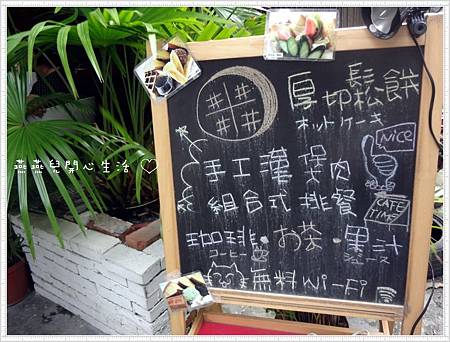 厚切鬆餅
ホットケーキ
NICE
手工漢堡肉
組合式排餐
CAFE TIME
珈琲.お茶.果汁
コーヒー ジュース
無料Wi-Fi
燕燕兒開心生活♡